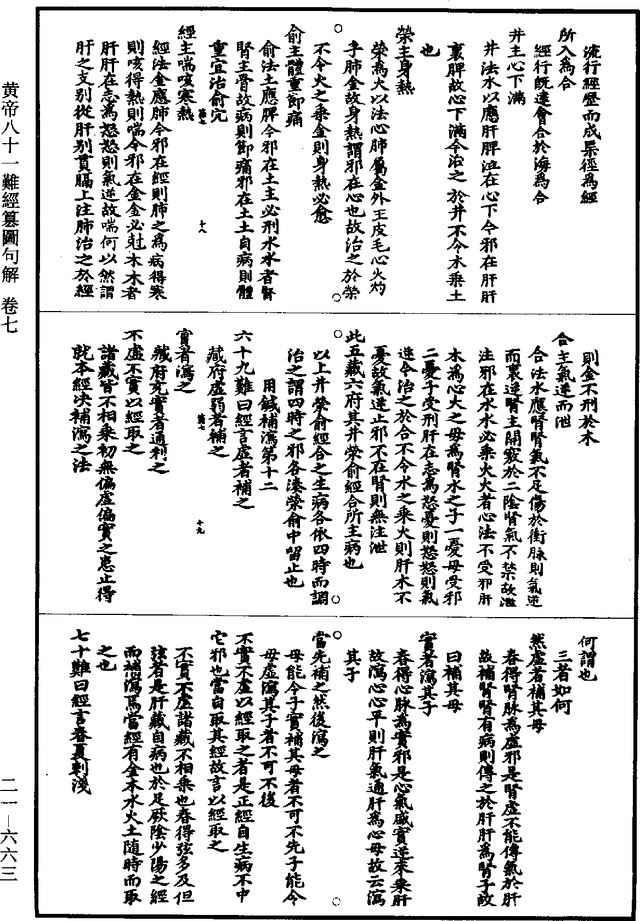 黄帝八十一難經纂圖句解 卷七
流行經歷而成渠徑為經
所入為合
經行既達會合於海為合
井主心下滿
井法水以應肝脾位在心下今邪在肝肝
裏脾故心下滿今治之於井不令木乗土
也
榮主身熱
榮為火以法心肺屬金外王皮毛心火灼
于肺金故身熱謂邪在心也故治之於榮
不令火之乗金則身熱必愈
俞主體重節痛
俞法土應脾今邪在土土必刑水水者腎
腎主骨故病則節痛邪在土土自病則體
重宜治俞穴
經主喘咳寒熱
經法金應肺今邪在經則肺之為病得寒
則咳得熱則喘今邪在金金必尅木木者
肝肝在志為怒怒則氣逆故喘何以然謂
肝之支别從肝别貫膈上注肺治之於經
則金不刑於木
合主氣逆而泄
合法水應腎腎氣不足傷於衝脉則氣逆
而裏逆腎主開竅於二陰腎氣不禁故泄
注邪在水水必乗火火者心法不受邪肝
木為心火之母為腎水之子一憂母受邪
二憂子受刑肝在志為怒憂則怒怒則氣
逆今治之於合不令水之乗火則肝木不
憂故氣逆止邪不在腎則無注泄
此五藏六府其井榮俞經合所主病也
以上井榮俞經合之生病各依四時而調
治之謂四時之邪各湊榮俞中留止也
用鍼補瀉第十二
六十九難曰經言虛者補之
藏府虛弱者補之
實者瀉之
藏府充實者通利之
不虛不實以經取之
諸藏皆不相乗初無偏虛偏實之患止得
就本經决補瀉之法
何謂也
三者如何
然虛者補其母
春得腎脉為虛邪是腎虛不能傳氣於肝
故補腎腎有病則傳之於肝肝為腎子故
曰補其母
實者瀉其子
春得心脉為實邪是心氣盛實逆來乗肝
故瀉心心平則肝氣通肝為心母故云瀉
其子
當先補之然後瀉之
母能令子實補其母者不可不先子能令
母虛瀉其子者不可不後
不實不虛以經取之者是正經自生病不中
它邪也當自取其經故言以經取之
不實不虛諸藏不相乗也春得弦多及但
弦者是肝藏自病也於足厥陰少陽之經
而補瀉焉當經有金木水火土隨時而取
之也
七十難曰經言春夏刺淺
二一—六六三